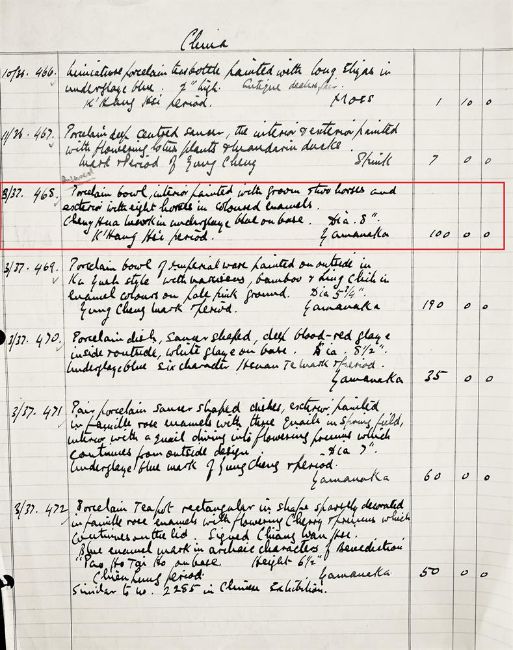 China
10/36. 466. Miniature porcelain tea bottle painted with long Elizas in
underglaze blue. 2" high.
K'Hang Hsi period. Moss 1 10 0
467. Porcelain deep centred saucer, the interior & exterior painted
with flowering lotus plants & mandarin ducks.
Mark & Period of Yung Cheng Spink 7 0 0
3/37. 468. Porcelain bowl, interior painted with groom & two horses and
exterior with eight horses in coloured enamels.
Cheng Hua mark in underglaze blue on base. Dia. 8".
K'Hang Hsi period. Yamanaka 100 0 0
3/37. 469. Porcelain bowl of Imperial ware painted on outside in
Ku Yueh style with narcissus, bamboo & Ling Chih in
enamel colours on pale pink ground. Dia 5 1/4"
Yung Cheng mark & period. Yamanaka 190 0 0
3/37. 470. Porcelain dish, saucer shaped, deep blood-red glaze
inside & outside, white glaze on base. Dia 8 1/2".
underglaze blue six character mark & period.
Yamanaka 35 0 0
3/37. 471. Pair porcelain saucer shaped dishes, exterior painted
in famille rose enamels with three quails in Spring field,
interior with a quail diving into flowering prunus which
continues from outside design. Dia 7".
Underglaze blue mark of Yung Cheng & period.
Yamanaka 60 0 0
3/37. 472. Porcelain Teapot rectangular in shape sparsely decorated
in famille rose enamels with flowering Cherry & prunus which
continues on the lid. Signed
Blue enamel mark in archaic characters of Benediction
on base. Height 6 1/2"
Chien Lung period. Yamanaka 50 0 0
Similar to no. 2285 in Chinese Exhibition.